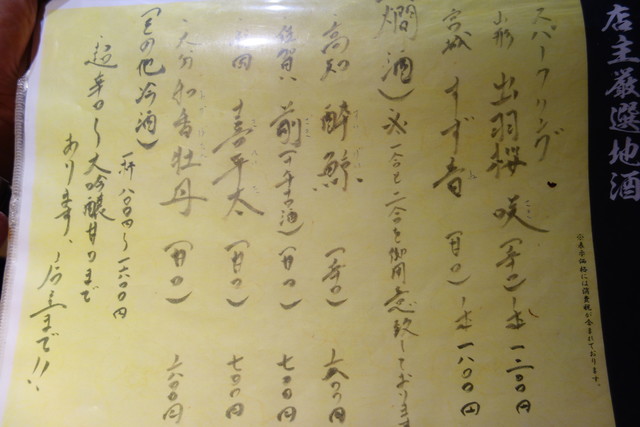 店主厳選地酒
※表示価格には消費税が含まれております。
スパークリング
山形 出羽桜 咲 (辛口) 一本 一二〇〇円
宮城 すず音 (甘口) 一本 一八〇〇円
燗酒) 一合も二合も御用意致しております
高知 酔鯨 (辛口) 六〇〇円
佐賀 前 (甘口) 七〇〇円
喜平太 (甘口) 七〇〇円
大分 和香牡丹 (甘口) 六〇〇円
(その他冷酒) 八〇〇円〜一六〇〇円
超辛口〜大吟醸甘口まで
あります、店主まで!!